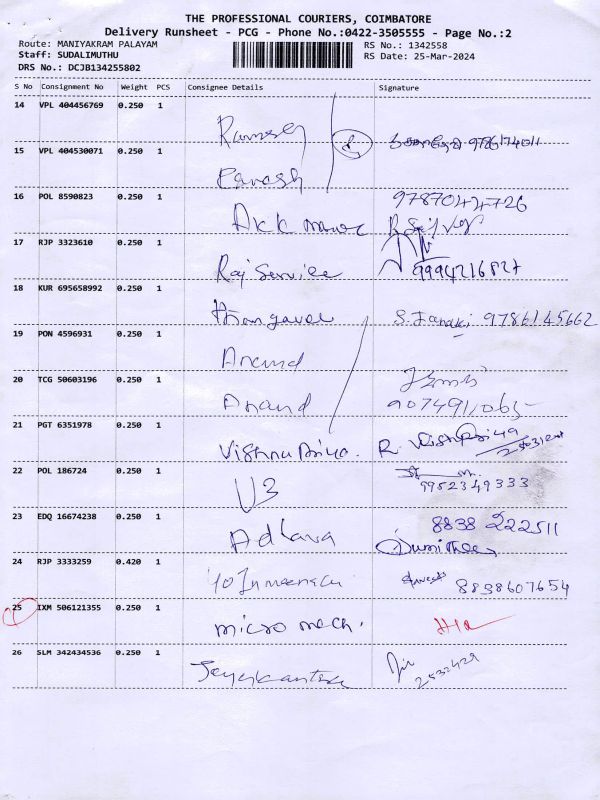 THE PROFESSIONAL COURIERS, COIMBATORE
Delivery Runsheet - PCG - Phone No.:0422-3505555 - Page No.:2
Route: MANIYAKRAM PALAYAM RS No.: 1342558
Staff: SUDALIMUTHU RS Date: 25-Mar-2024
DRS No.: DCJB134255802
S No Consignment No Weight PCS Consignee Details Signature
14 VPL 404456769 0.250 1
Ramesh
15 VPL 404530071 0.250 1
Ganesh
16 POL 8590823 0.250 1 9787044726
17 RJP 3323610 0.250 1
Raj Service 9994216827
18 KUR 695658992 0.250 1
Thangavel S. Janaki 9786145662
19 PON 4596931 0.250 1
Anand
20 TCG 50603196 0.250 1
Anand 9074911065
21 PGT 6351978 0.250 1
Vishnu Priya. R. Vishnu Priya
22 POL 186724 0.250 1
U3 9952349333
23 EDQ 16674238 0.250 1 8838 222511
24 RJP 3333259 0.420 1
8838607654
25 IXM 506121355 0.250 1
micro mech.
26 SLM 342434536 0.250 1
2532429